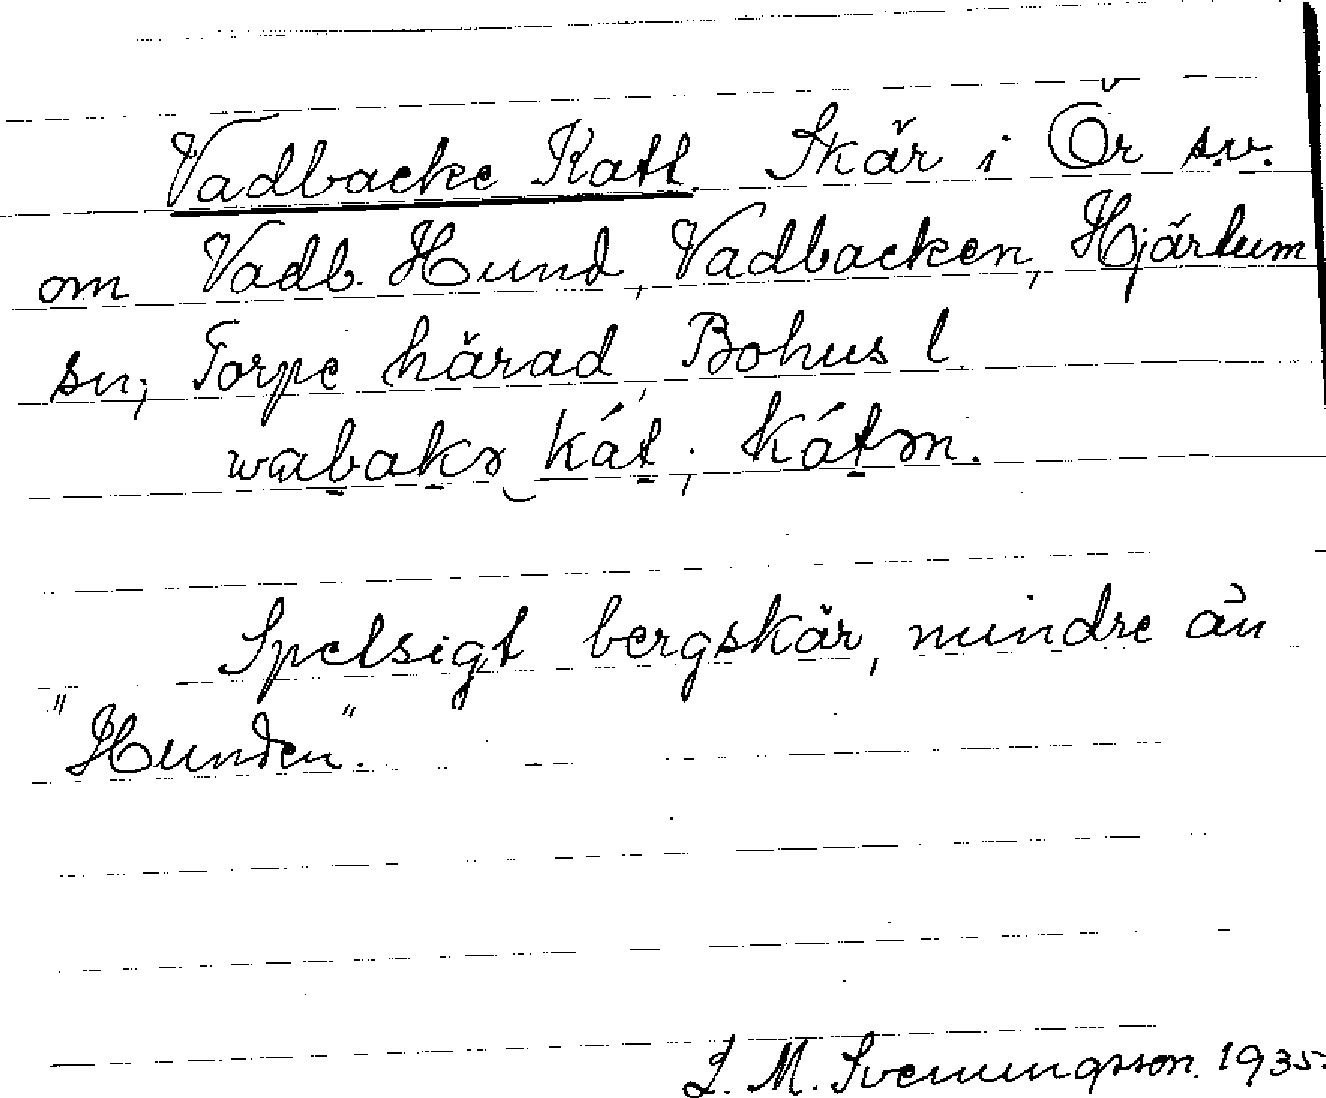 Vadbacke Katt Skär i Ör s.v.
om Vadb. Hund, Vadbacken, Hjärtum
sn, Torpe härad, Bohus l.
wabakə kát; kátən.
Spetsigt bergskär, mindre än
"Hunden".
L. M. Svenungsson. 1935.